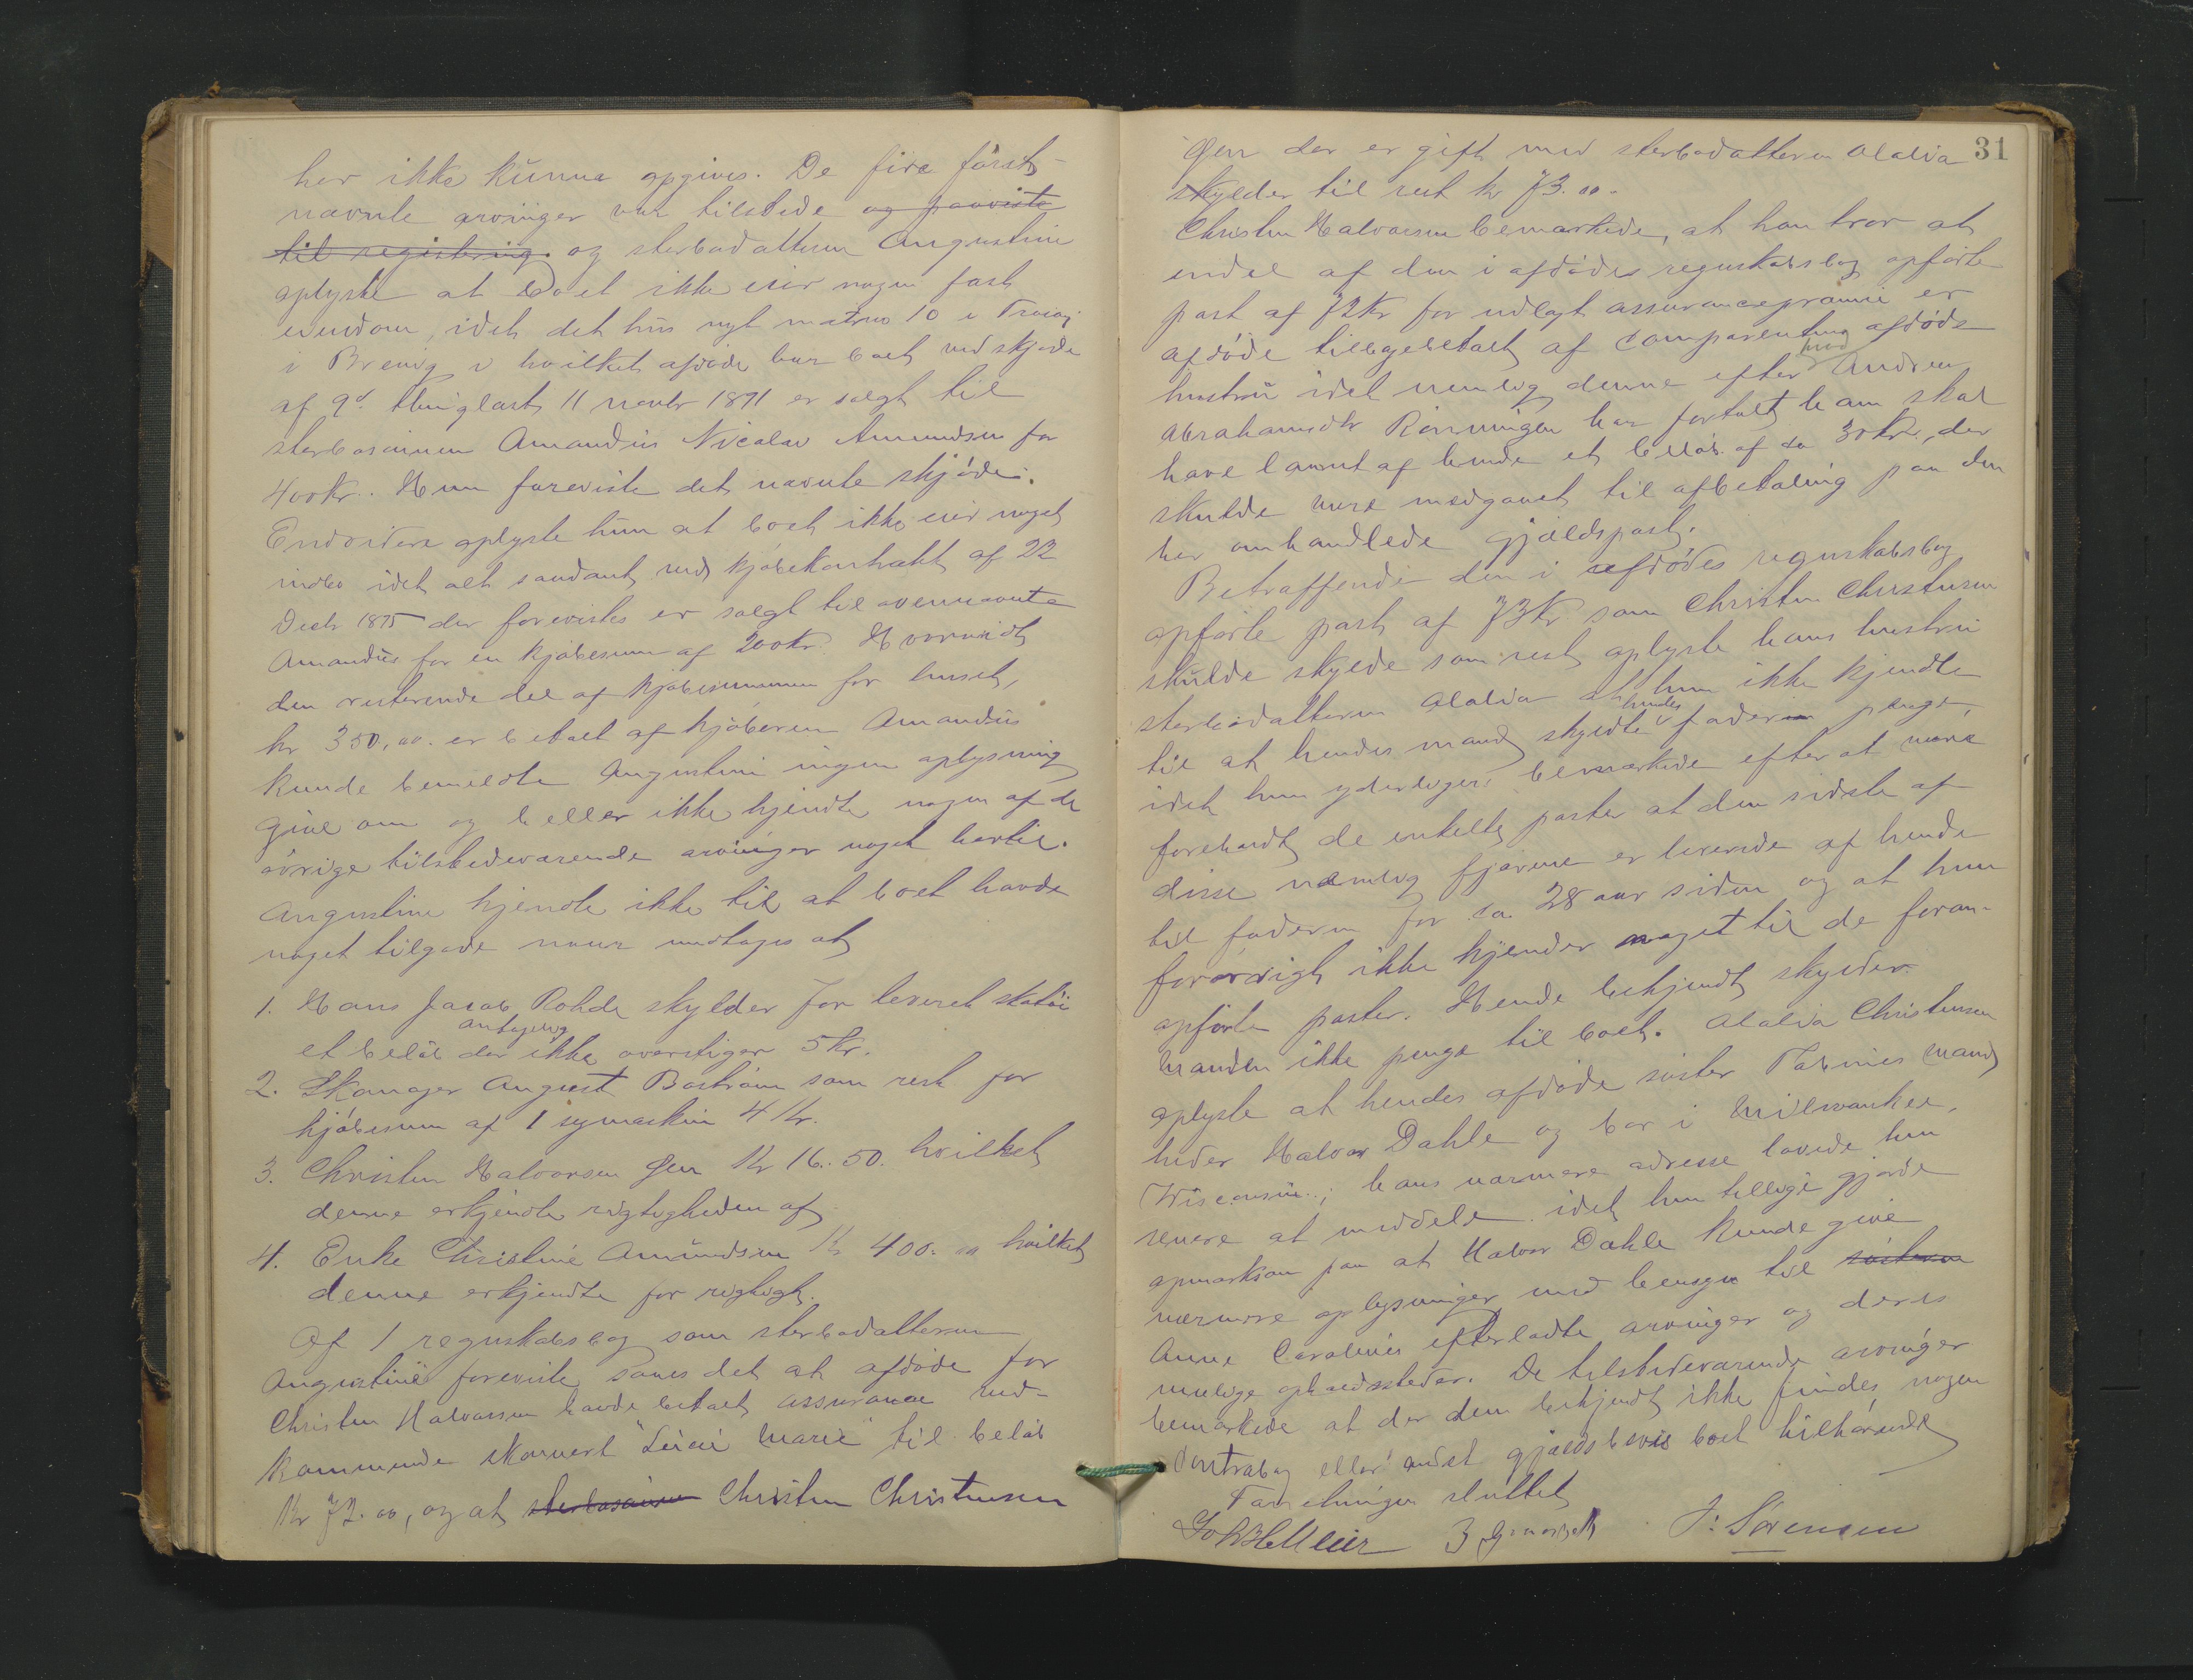 her ikke kunne opgives. De fire først-
nævnte arvinger var tilstede og paaviste
til registrering. og sterbodatteren Augustine
oplyste at boet ikke eier nogen fast
eiendom, idet det hus nyt matrno 10 i Trosvig
i Brevig i hvilket afdøde har boet ved skjøde
af 9d. thinglæst 11 novbr 1891 er solgt til
sterbosønnen Amandus Nicolai Amundsen for
400 kr. Hun foreviste det nævnte skjøde.
Endvidere oplyste hun at boet ikke eier noget
indbo idet alt saadant ved kjøbekontrakt af 22
Decbr 1895 der forevistes er solgt til ovennævnte
Amandus for en kjøbesum af 200 kr. Hvorvidt
den resterende del af kjøbesummen for huset,
kr 350,00. er betalt af kjøberen Amandus
kunde bemeldte Augustine ingen oplysning
give om og heller ikke kjendte nogen af de
øvrige tilstedeværende arvinger noget hertil.
Augustine kjendte ikke til at boet havde
noget tilgode naar undtages at
1. Hans Jacob Rohde skylder for leveret skotøi
et beløb der antagelig ikke overstiger 5 kr.
2. Skomager August Boström som rest for
kjøbesum af 1 symaskin 4 kr.
3. Christen Halvorsen Øen kr 16.50. hvilket
denne erkjendte rigtigheden af
4. Enke Christine Amundsen kr 400.00 hvilket
denne erkjendte for rigtigt.
Af 1 regnskabsbog som sterbodatteren
Augustine foreviste saaes det at afdøde for
Christen Halvorsen havde betalt assurance ved-
kommende skonnert "Luci Marie" til beløb
kr 72.00, og at sterbosønnen Christen Christensen
31
Øen der er gift med sterbodatteren Alalia
skylder til rest kr 73.00.
Christen Halvorsen bemærkede, at han tror at
endel af den i afdødes regnskabsbog opførte
post af 72 kr for udlagt assurancepræmie er
afdøde tilbagebetalt af comparentens afdøde
hustru idet nemlig denne efter hvad Andrea
Abrahamsdtr Rønningen har fortalt ham skal
have laant af hende et beløb af ca 30 kr, der
skulde være medgaaet til afbetaling paa den
her omhandlede gjældspost.
Betræffende den i afdødes regnskabsbog
opførte post af 73 kr som Christen Christensen
skulde skylde som rest oplyste hans hustru
sterbodatteren Alalia at hun ikke kjendte
til at hendes mand skyldte hendes fader penge,
idet hun yderligere bemærkede efter at være
foreholdt de enkelte poster at den sidste af
disse nemlig fjærene er leverede af hende
til faderen for ca. 28 aar siden og at hun
forøvrigt ikke kjender noget til de foran-
opførte poster. Hende bekjendt skylder
manden ikke penge til boet. Alalia Christensen
oplyste at hendes afdøde søster Tabines mand
heder Halvor Dahle og bor i Milwaukee,
Wisconsin.; hans nærmere adresse lovede hun
senere at meddele idet hun tillige gjorde
opmærksom paa at Halvor Dahle kunde give
nærmere oplysninger med hensyn til søsteren
Anne Carolines efterladte arvinger og deres
mulige opholdssteder. De tilstedeværende arvinger
bemærkede at der dem bekjendt ikke findes nogen
Contrabog eller andet gjældsbevis boet tilhørende
Forretningen sluttet
J. Sørensen